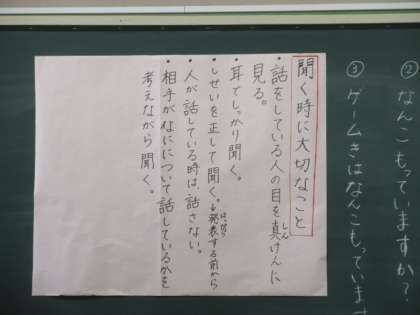 ②なんこもっていますか？
③ゲームきはなんこもっています
聞く時に大切なこと
・話をしている人の目を真けんに
見る。
・耳でしっかり聞く。
・しせいを正して聞く。↓発表する前から
・人が話している時は、話さない。
・相手がなにについて話しているかを
考えながら聞く。